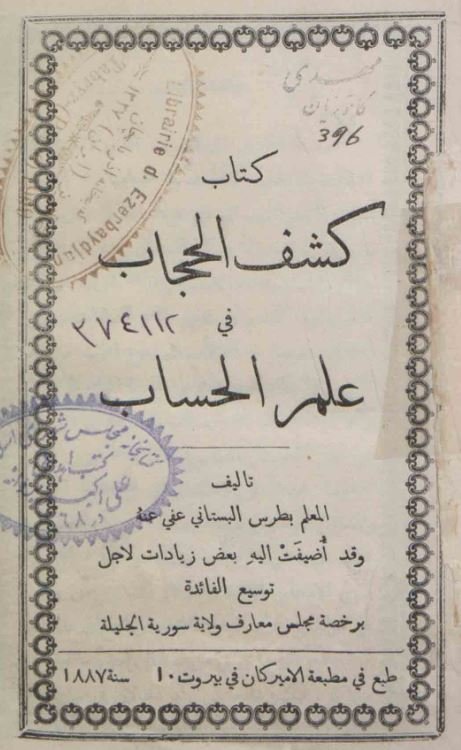 مهدی
396
كتاب
كشف الحجاب
في
٣٧٤١١٢
علم الحساب
تاليف
المعلم بطرس البستاني عفي عنهُ
وقد أُضيفَتْ اليهِ بعض زيادات لاجل
توسيع الفائدة
برخصة مجلس معارف ولاية سورية الجليلة
طبع في مطبعة الاميركان في بيروت ١٠ سنة ١٨٨٧
Librairie d Ezerbaydjan
كتابخانه مجلس
علی اکبر